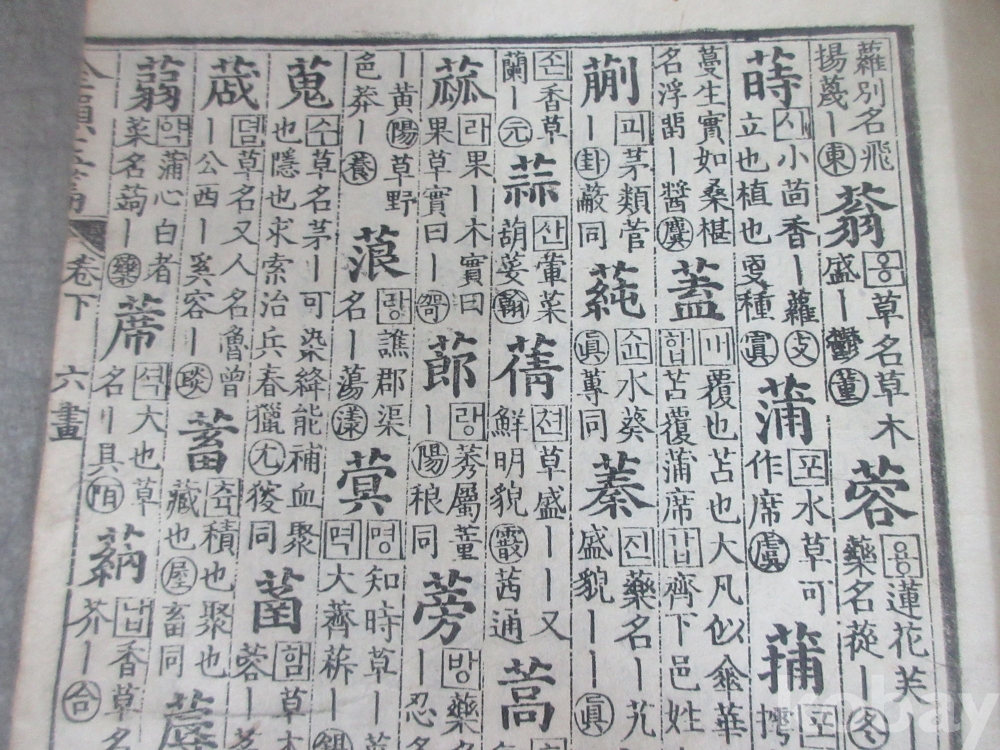 蘿別名飛
揚薎ー東
蓊
옹草名草木
盛ー鬱董
蓉
용蓮花芙
藥名蓯ー冬
蒔
시小茴香ー蘿支
立也植也更種寘
蒲
포水草可
作席虞
蒱
포
摴
蔓生實如桑椹
名浮留ー醬麌
蓋
개覆也苫也大凡似傘華
합苫覆蒲席갑齊下邑姓
蒯
괴茅類菅
ー卦蔽同
蒓
순水葵
眞蓴同
蓁
진藥名ー艽
盛貌ーー眞
존香草
蘭ー元
蒜
산葷菜
葫荽翰
蒨
쳔草盛ー又
鮮明貌霰茜通
蒿
蓏
라果ー木實曰
果草實曰ー哿
蓈
랑莠屬童
ー陽稂同
蒡
방藥
ー忍名
ー黃陽草野
色莽ー養
蒗
랑譙郡渠
名ー蕩漾
蓂
명知時草ー
멱大薺菥
蒐
수草名茅ー可染絳能補血聚
也隱也求索治兵春獵尤獀同
菡
함草
蓉ー
蒧
뎜草名又人名魯曾
ー公西ー奚容ー琰
蓄
축積也聚也
藏也屋畜同
蓐
蒻
약蒲心白者
ー菜名蒟ー藥
蓆
셕大也草
名ー具陌
蒳
납香草
芥ー合
全韻玉篇 卷下 六畫